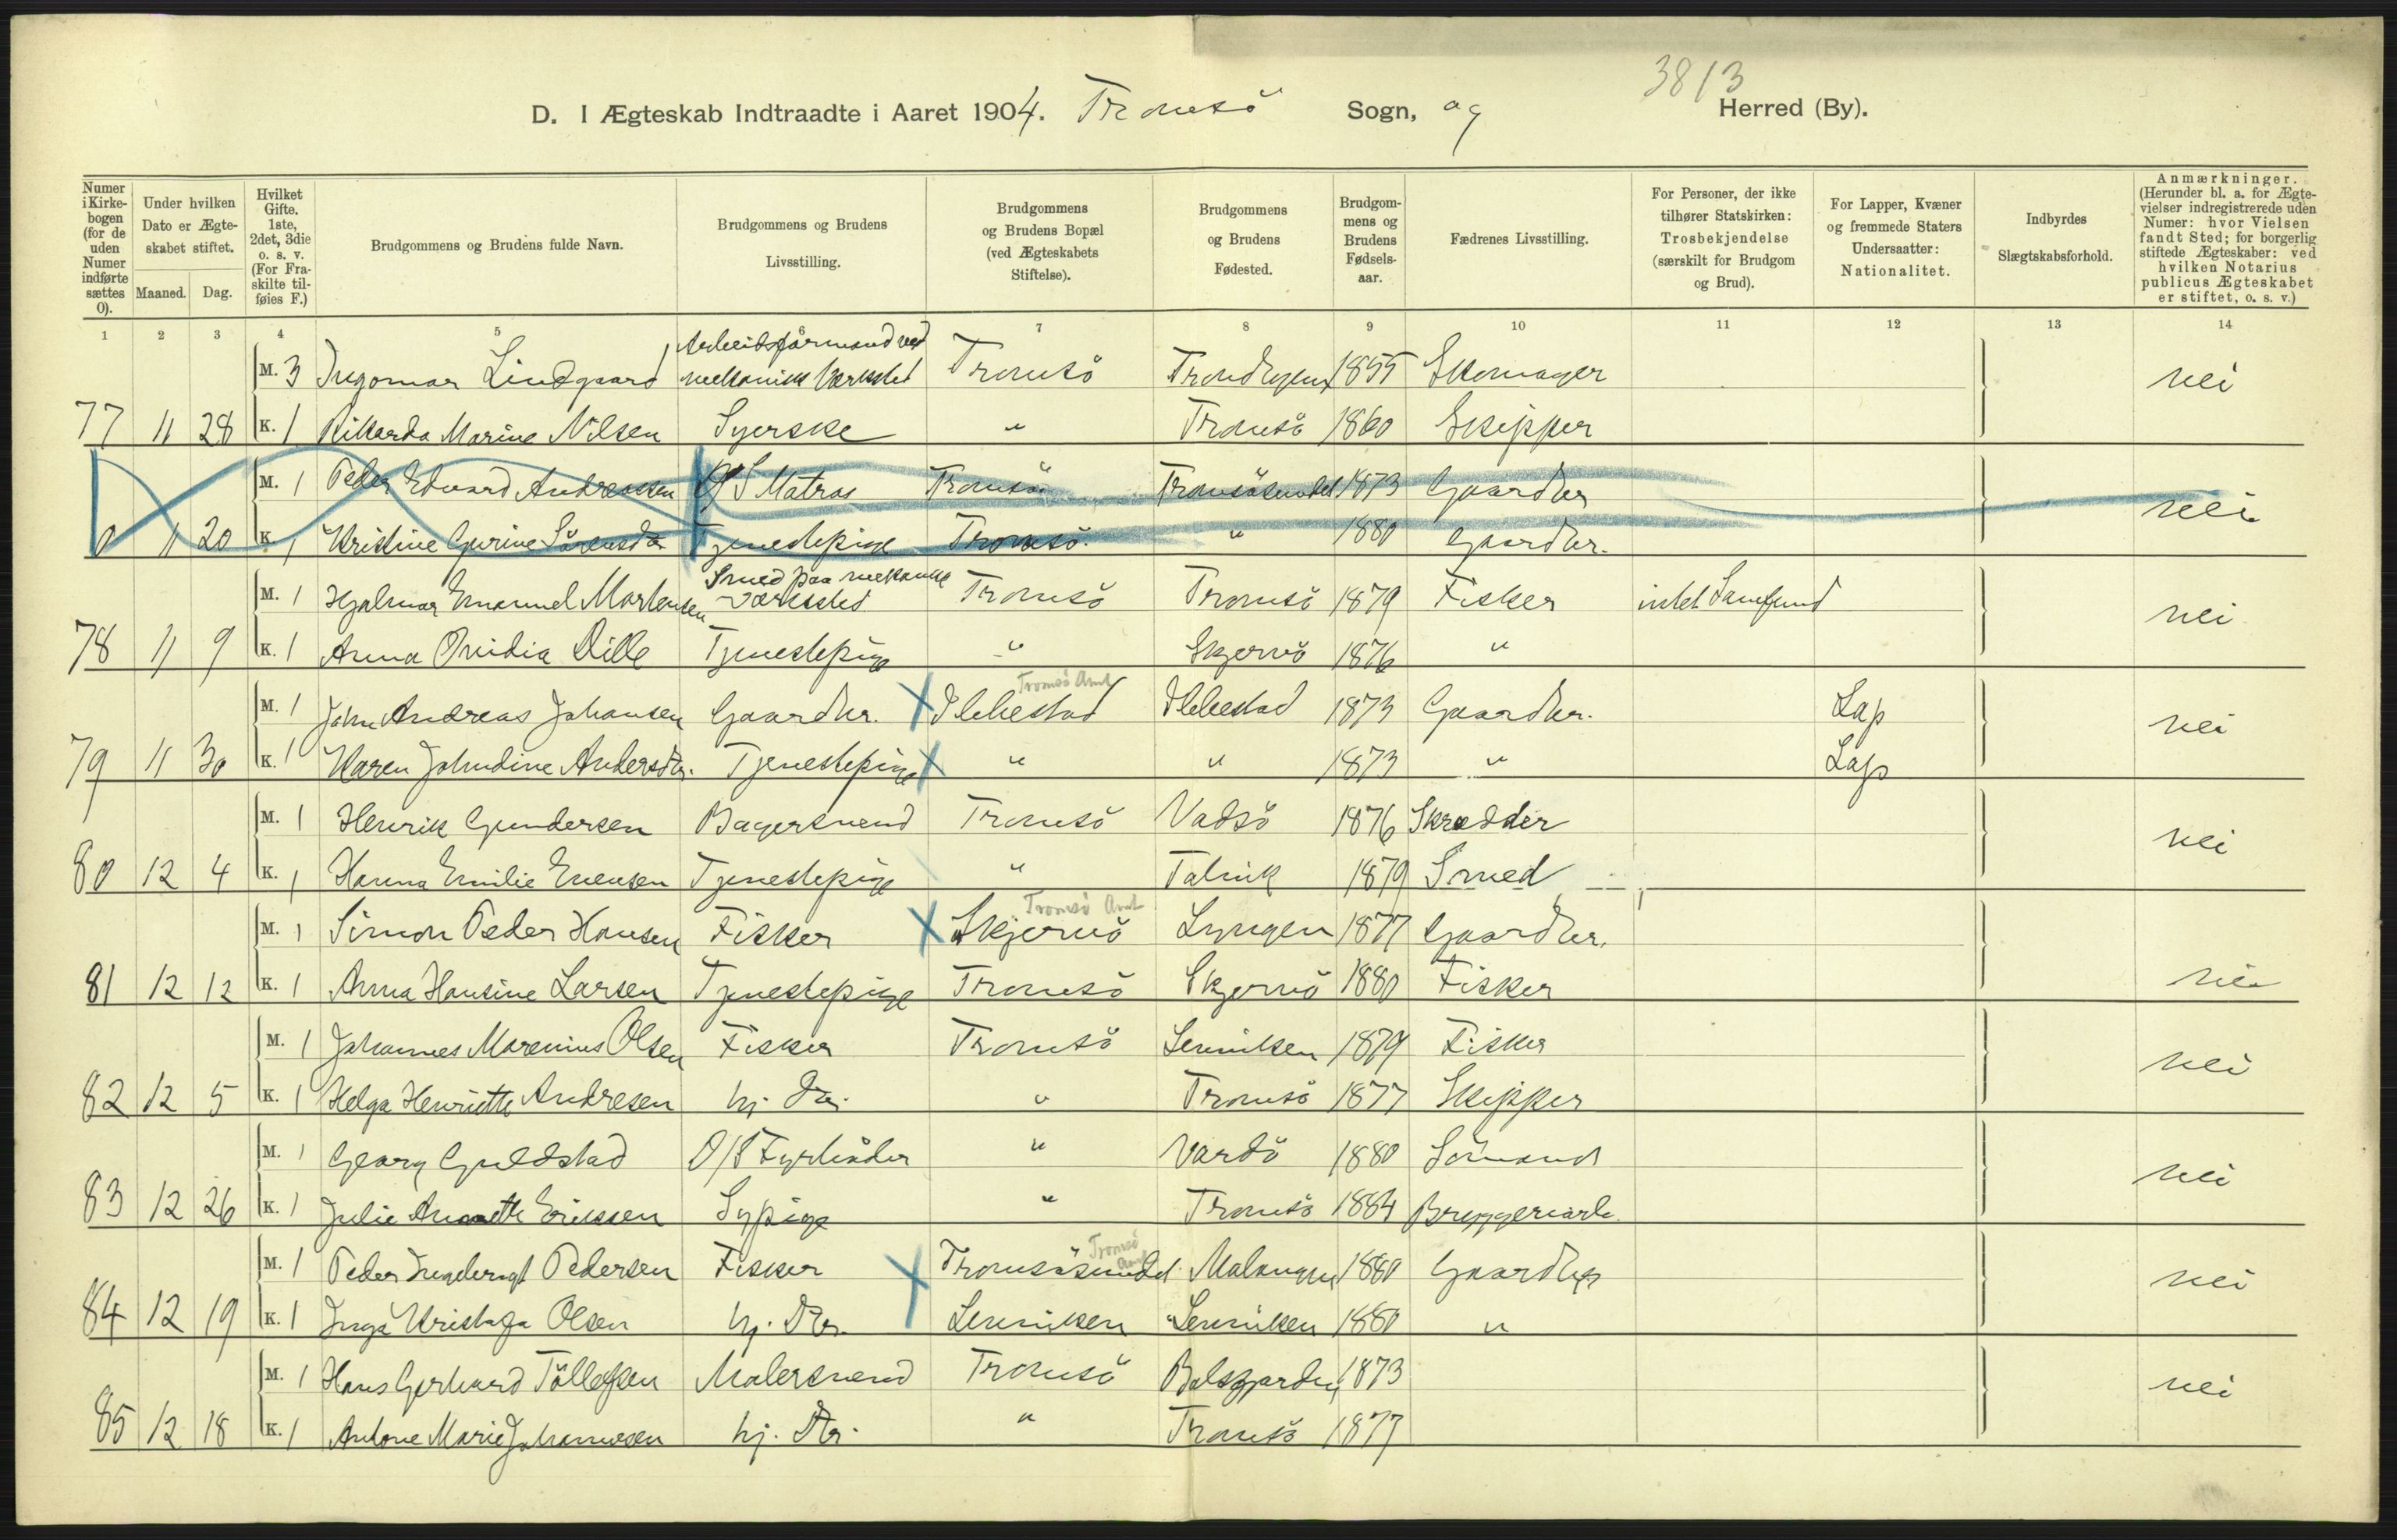 3813
D. I Ægteskab Indtraadte i Aaret 1904. Tromsö Sogn, og Herred (By).
Numer i Kirkebogen (for de uden Numer indførte sættes 0).
Under hvilken Dato er Ægteskabet stiftet.
Maaned. Dag.
Hvilket Gifte. 1ste, 2det, 3die o. s. v. (For Fraskilte tilføies F.)
Brudgommens og Brudens fulde Navn.
Brudgommens og Brudens Livsstilling.
Brudgommens og Brudens Bopæl (ved Ægteskabets Stiftelse).
Brudgommens og Brudens Fødested.
Brudgommens og Brudens Fødselsaar.
Fædrenes Livsstilling.
For Personer, der ikke tilhører Statskirken: Trosbekjendelse (særskilt for Brudgom og Brud).
For Lapper, Kvæner og fremmede Staters Undersaatter: Nationalitet.
Indbyrdes Slægtskabsforhold.
Anmærkninger. (Herunder bl. a. for Ægtevielser indregistrerede uden Numer: hvor Vielsen fandt Sted; for borgerlig stiftede Ægteskaber: ved hvilken Notarius publicus Ægteskabet er stiftet, o. s. v.)
1 2 3 4 5 6 7 8 9 10 11 12 13 14
M. 3 Ingomar Lindgaard Arbeidsformand ved mekanisk Værksted Tromsö Trondhjem 1855 Skomager nei
77 11 28 K. 1 Rikarda Marine Nilsen Syerske " Tromsö 1860 Skipper
M. 1 Peder Edvard Andreassen O/S Matros Tromsö Tromsösundet 1873 Gaardbr nei
0 11 20 K. 1 Kristine Gurine Sörensdtr Tjenestepige Tromsö. " 1880 Gaardbr.
M. 1 Hjalmar Emanuel Mortensen Smed paa mekanisk Værksted Tromsö Tromsö 1879 Fisker intet Samfund nei
78 11 9 K. 1 Anna Ovidia Dille Tjenestepige " Skjervö 1876 "
Tromsö Amt
M. 1 John Andreas Johansen Gaardbr. X Ibbestad Ibbestad 1873 Gaardbr. Lap nei
79 11 30 K. 1 Karen Johndine Andersdtr. Tjenestepige X " " 1873 " Lap
M. 1 Henrik Gundersen Bagersvend Tromsö Vadsö 1876 Skrædder nei
80 12 4 K. 1 Hanna Emilie Evensen Tjenestepige " Talvik 1879 Smed
Tromsö Amt
M. 1 Simon Peder Hansen Fisker X Skjervö Lyngen 1877 Gaardbr.
81 12 12 K. 1 Anna Hansine Larsen Tjenestepige Tromsö Skjervö 1880 Fisker nei
M. 1 Johannes Marenius Olsen Fisker Tromsö Lenviken 1879 Fisker nei
82 12 5 K. 1 Helga Henriette Andresen hj. Dtr. " Tromsö 1877 Skipper
M. 1 Georg Guldstad O/S Fyrböder " Vardö 1880 Sömand nei
83 12 26 K. 1 Julie Annette Eriksen Sypige " Tromsö 1884 Bryggeriarb.
Tromsö Amt
M. 1 Peder Ingebrigt Pedersen Fisker X Tromsösundet Malangen 1880 Gaardbr nei
84 12 19 K. 1 Inga Kristafa Olsen hj. Dtr. Lenviken Lenviken 1880 "
M. 1 Hans Gerhard Töllefsen Malersvend Tromsö Balsfjorden 1873 nei
85 12 18 K. 1 Antone Marie Johannesen hj. Dtr. " Tromsö 1877